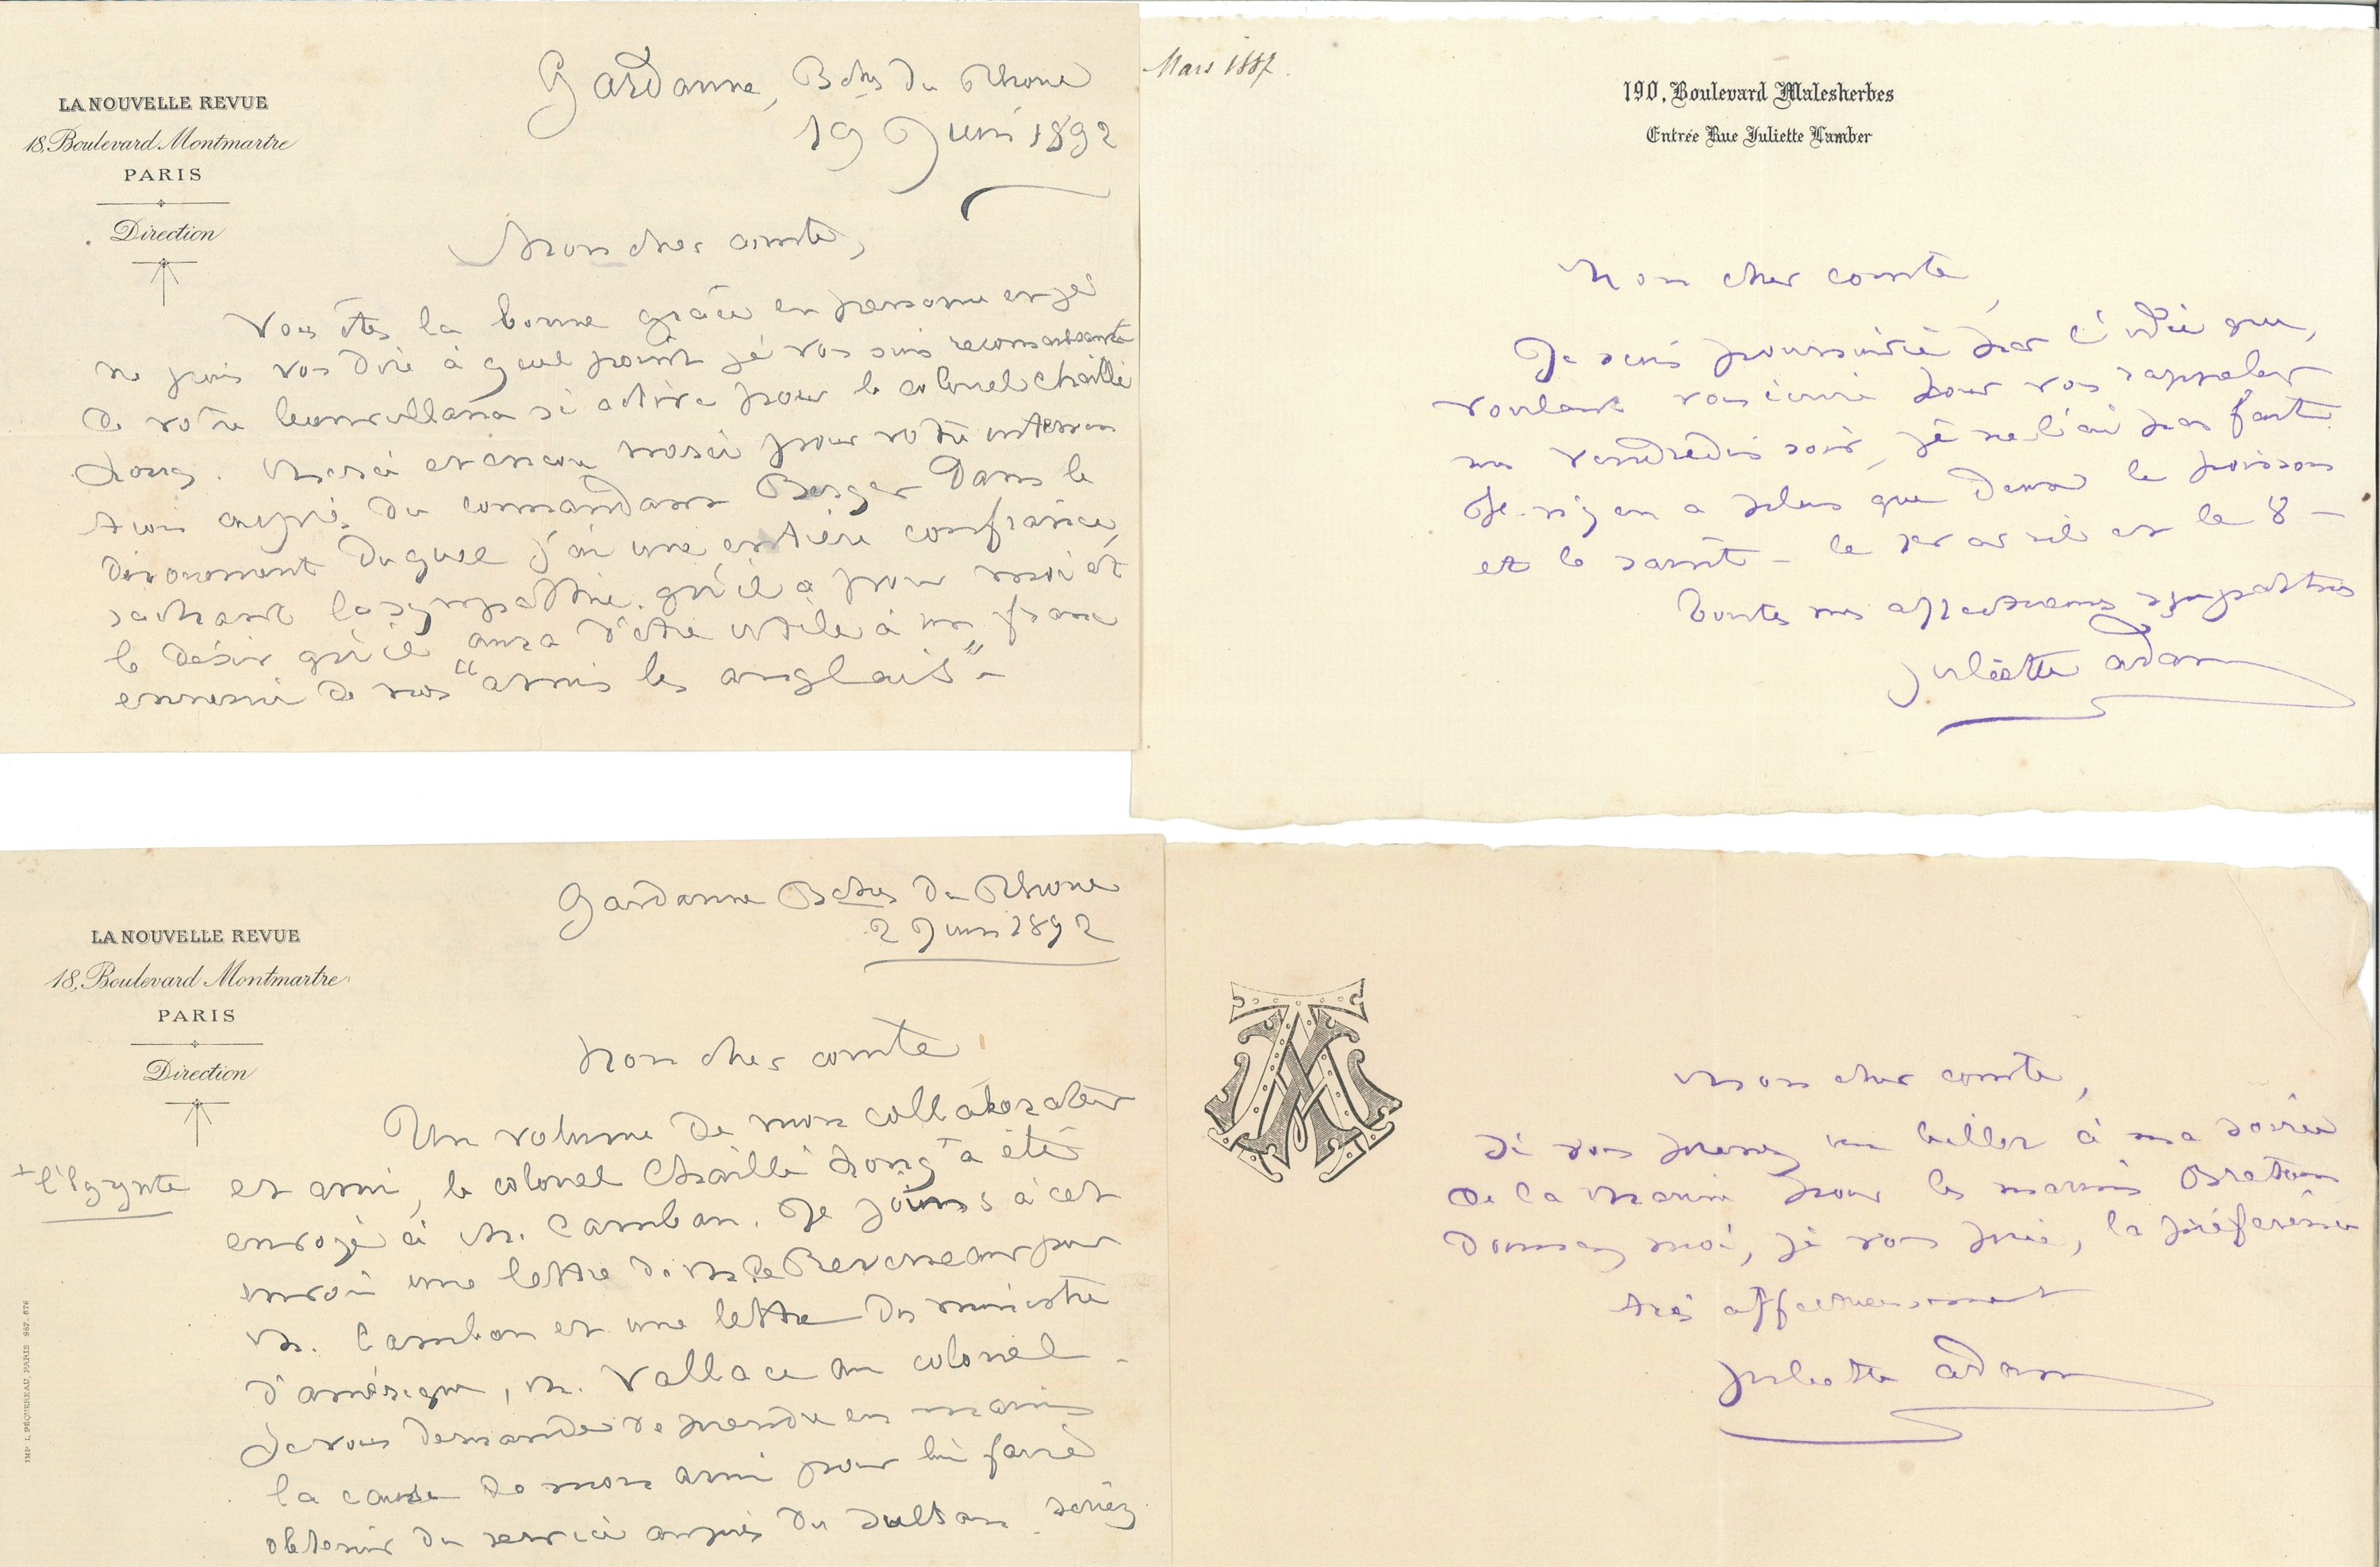 LA NOUVELLE REVUE
18, Boulevard Montmartre
PARIS
Direction
Gardanne, Bches du Rhone
19 Juin 1892
Mon cher comte,
Vous êtes la bonne grâce en personne et je
ne puis vos dire à quel point je vos suis reconnaissante
de votre si active pour le colonel Chaillé
Long. Merci et encore merci pour votre interven
tion auprès du commandant Berger dans le
dévouement duquel j'ai une entière confiance,
sachant la sympathie qu'il a pour moi et
le désir qu'il aura d'être utile à un franc
ennemi de nos "amis les anglais" -
Mars 1887.
190, Boulevard Malesherbes
Entrée Rue Juliette Lamber
Mon cher comte,
Je suis poursuivie par l'idée que,
voulant vous écrire pour vos rappeler
mes vendredis soir, je ne l'ai pas fait.
Il n'y en a plus que deux le poisson
et le saint - le 1er avril et le 8 -
Toutes mes affectueuses sympathies
Juliette Adam
LA NOUVELLE REVUE
18, Boulevard Montmartre
PARIS
Direction
Gardanne Bches du Rhone
2 Juin 1892
Mon cher comte,
Un volume de mon collaborateur
+ l'Egypte
et ami, le colonel Chaillé Long + a été
envoyé à M. Cambon. Je joins à cet
envoi une lettre de M. de Reverseaux pour
M. Cambon et une lettre du ministre
d'amérique, M. Vallace au colonel -
Je vous demande de prendre en mains
la cause de mon ami pour lui faire
obtenir du service auprès du Sultan. Seriez
IMP. L. PÉCHEREAU, PARIS 957.676
JA
Mon cher comte,
Si vous prenez un billet à ma soirée
de la marine pour les marins Bretons
donnez moi, je vous prie, la préférence
très affectueusement
Juliette Adam